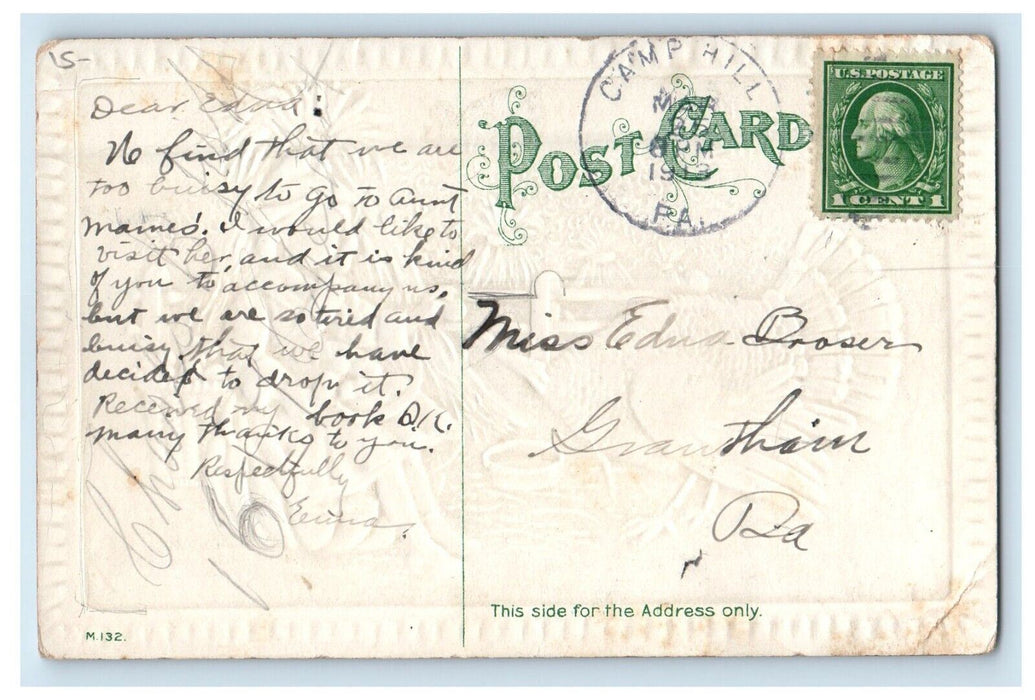 15-
Dear Edna:
We find that we are
too buisy to go to Aunt
Mames'. I would like to
visit her, and it is kind
of you to accompany us,
but we are so tired and
buisy that we have
decided to drop it.
Received my book O.K.
Many thanks to you.
Respectfully
M.132.
POST CARD
CAMP HILL
PA.
U.S. POSTAGE
1 CENT 1
Miss Edna Booser
Grantham
Pa
This side for the Address only.